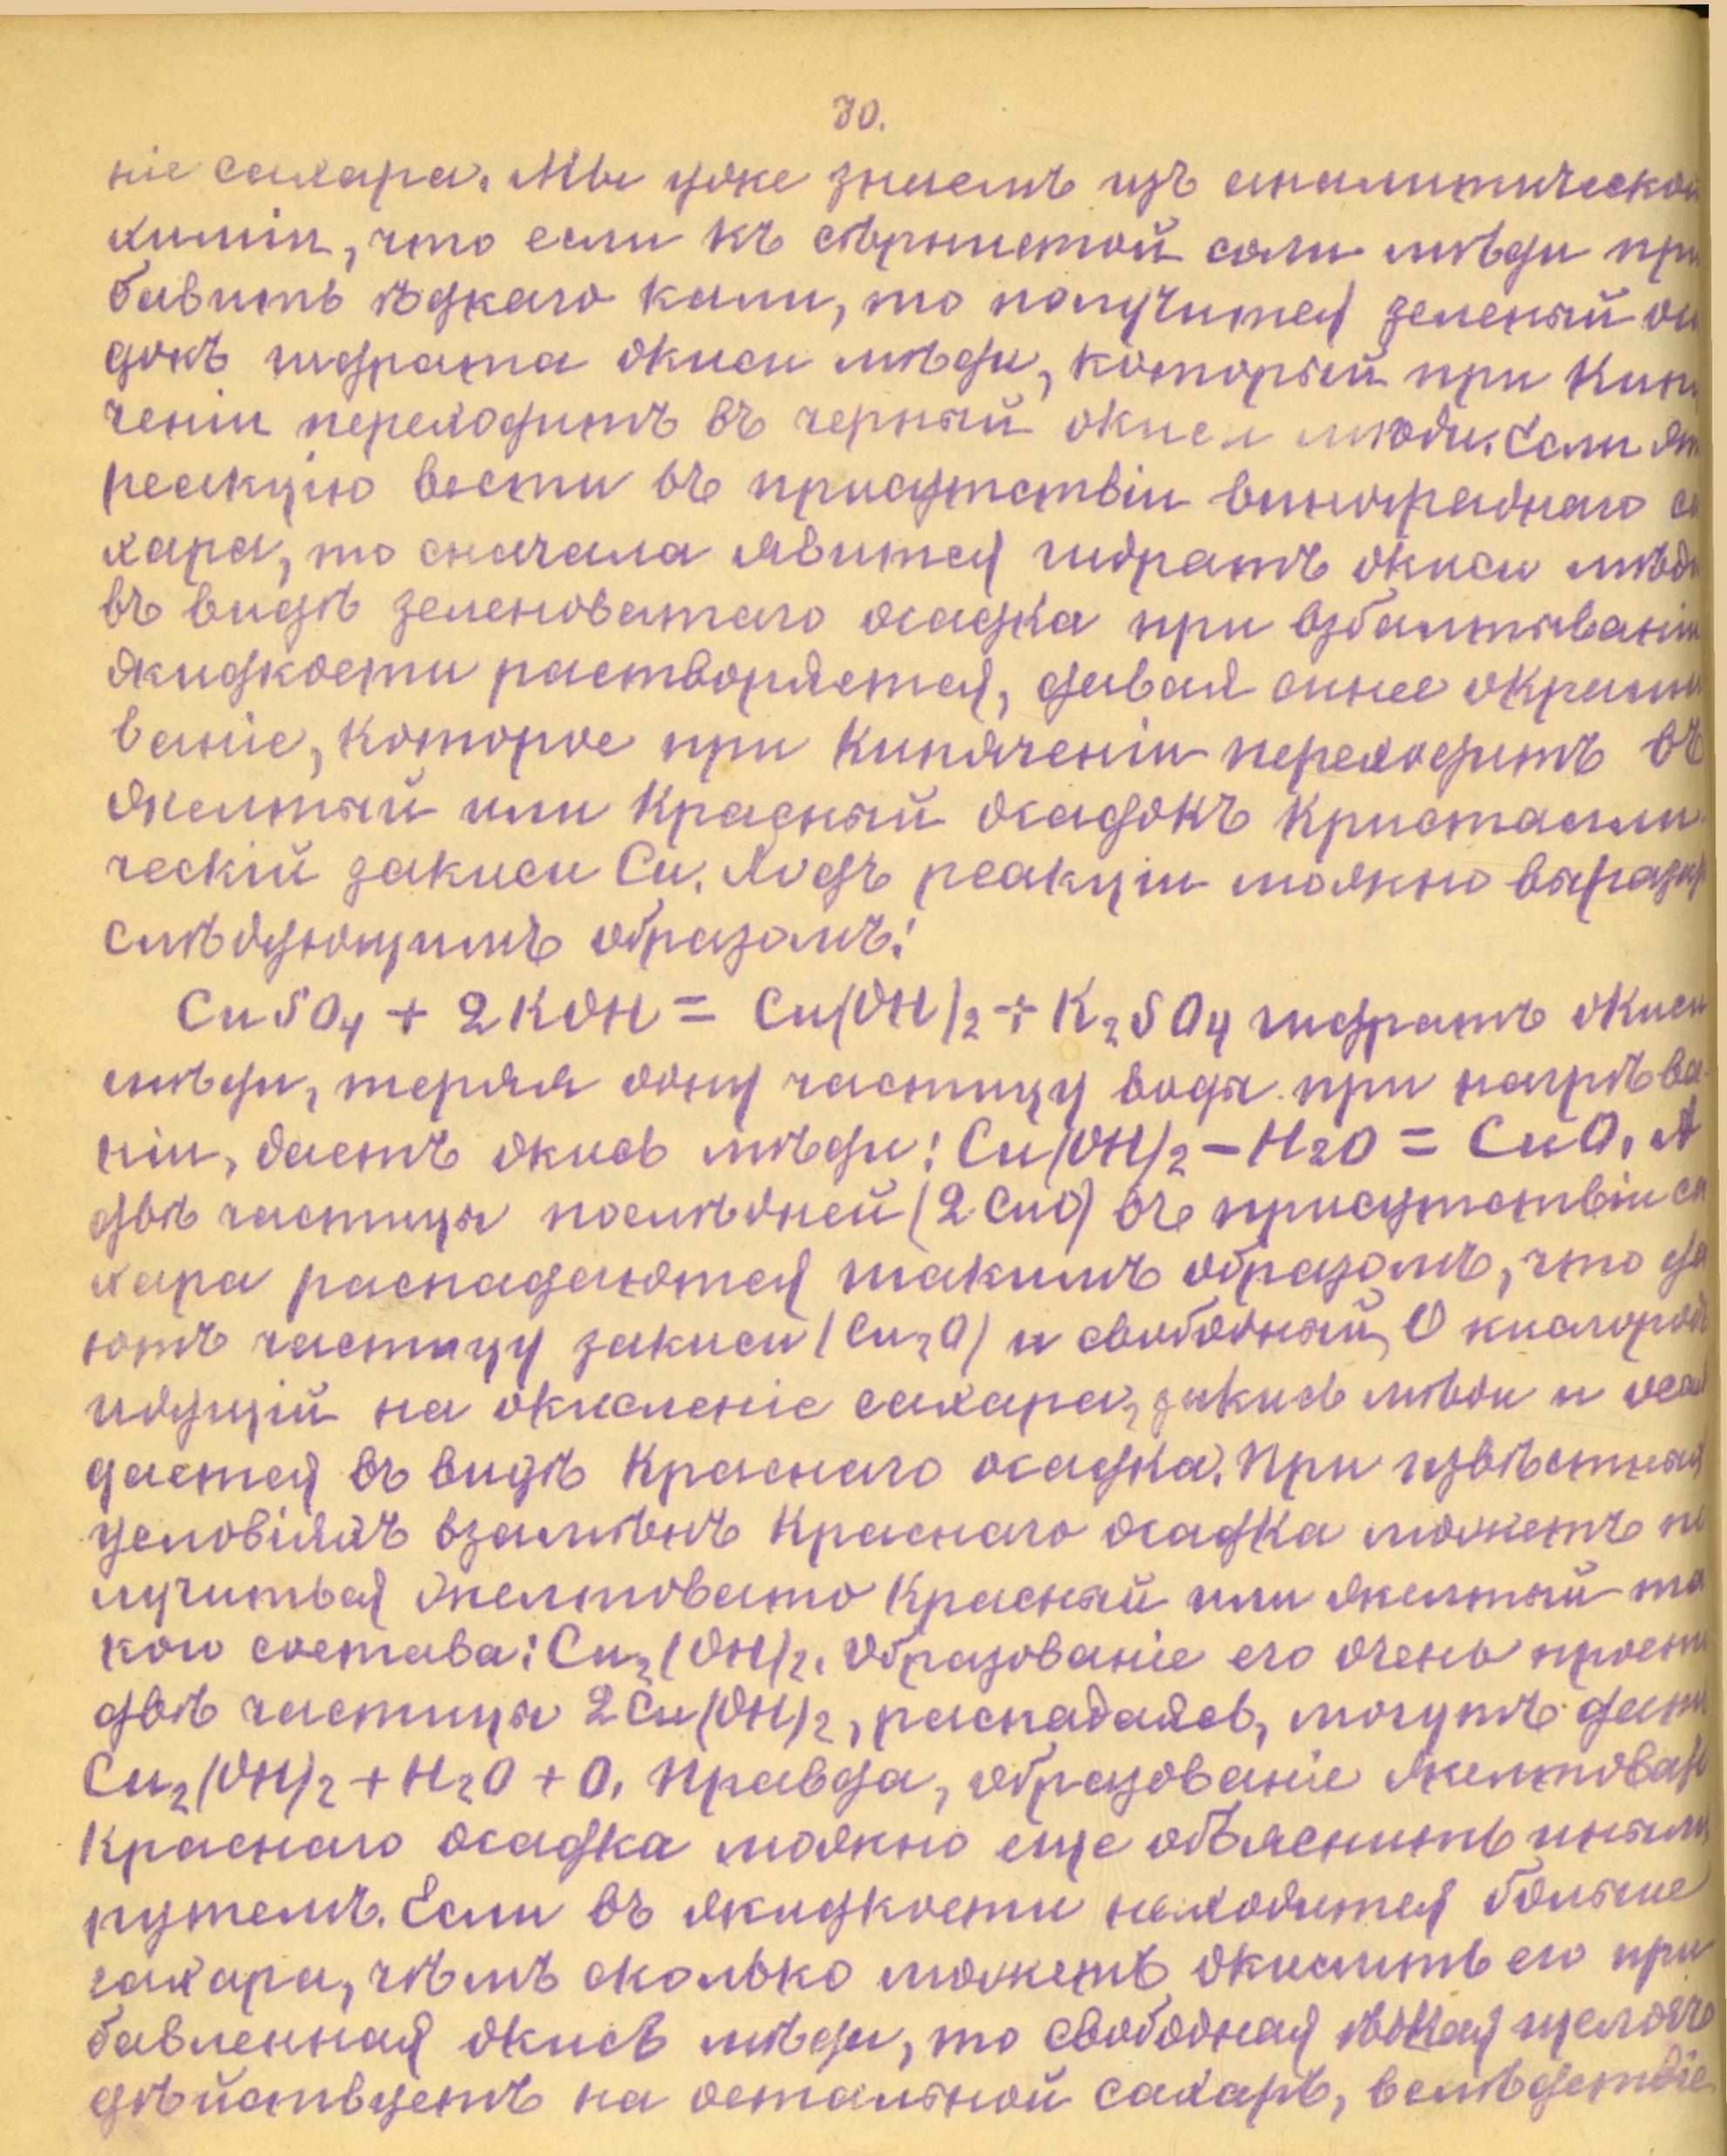 30.
ніе сахара. Мы уже знаемъ изъ аналитической
химіи, что если къ сѣрнистой соли мѣди при
бавить ѣдкаго кали, то получится зеленый оса
докъ гидрата окиси мѣди, который при кипя
ченіи переходитъ въ черный окисел мѣди. Если эту
реакцію вести въ присутствіи винограднаго са
хара, то сначала явится гидратъ окиси мѣди
въ видѣ зеленоватаго осадка при взбалтываніи
жидкости растворяется, давая синее окраши
ваніе, которое при кипяченіи переходитъ въ
желтый или красный осадокъ кристалли
ческій закиси Cu. Ходъ реакціи можно выразить
слѣдующимъ образомъ:
CuSO₄ + 2KOH = Cu(OH)₂ + K₂SO₄ гидратъ окиси
мѣди, теряя одну частицу воды при нагрѣва
ніи, даетъ окись мѣди: Cu(OH)₂ – H₂O = CuO. А
двѣ частицы послѣдней (2CuO) въ присутствіи са
хара распадаются такимъ образомъ, что да
ютъ частицу закиси (Cu₂O) и свободный O кислородъ
идущій на окисленіе сахара, закись мѣди и осаж
дается въ видѣ краснаго осадка. При извѣстныхъ
условіяхъ взамѣнъ краснаго осадка можетъ по
лучиться желтовато красный или желтый та
кого состава: Cu₂(OH)₂. Образованіе его очень просто
двѣ частицы 2Cu(OH)₂, распадаясь, могутъ дать
Cu₂(OH)₂ + H₂O + O. Правда, образованіе желтовато
краснаго осадка можно еще объяснить инымъ
путемъ. Если въ жидкости находится больше
сахара, чѣмъ сколько можетъ окислить его при
бавленная окись мѣди, то свободная ѣдкая щелочь
дѣйствуетъ на остальной сахаръ, вслѣдствіе